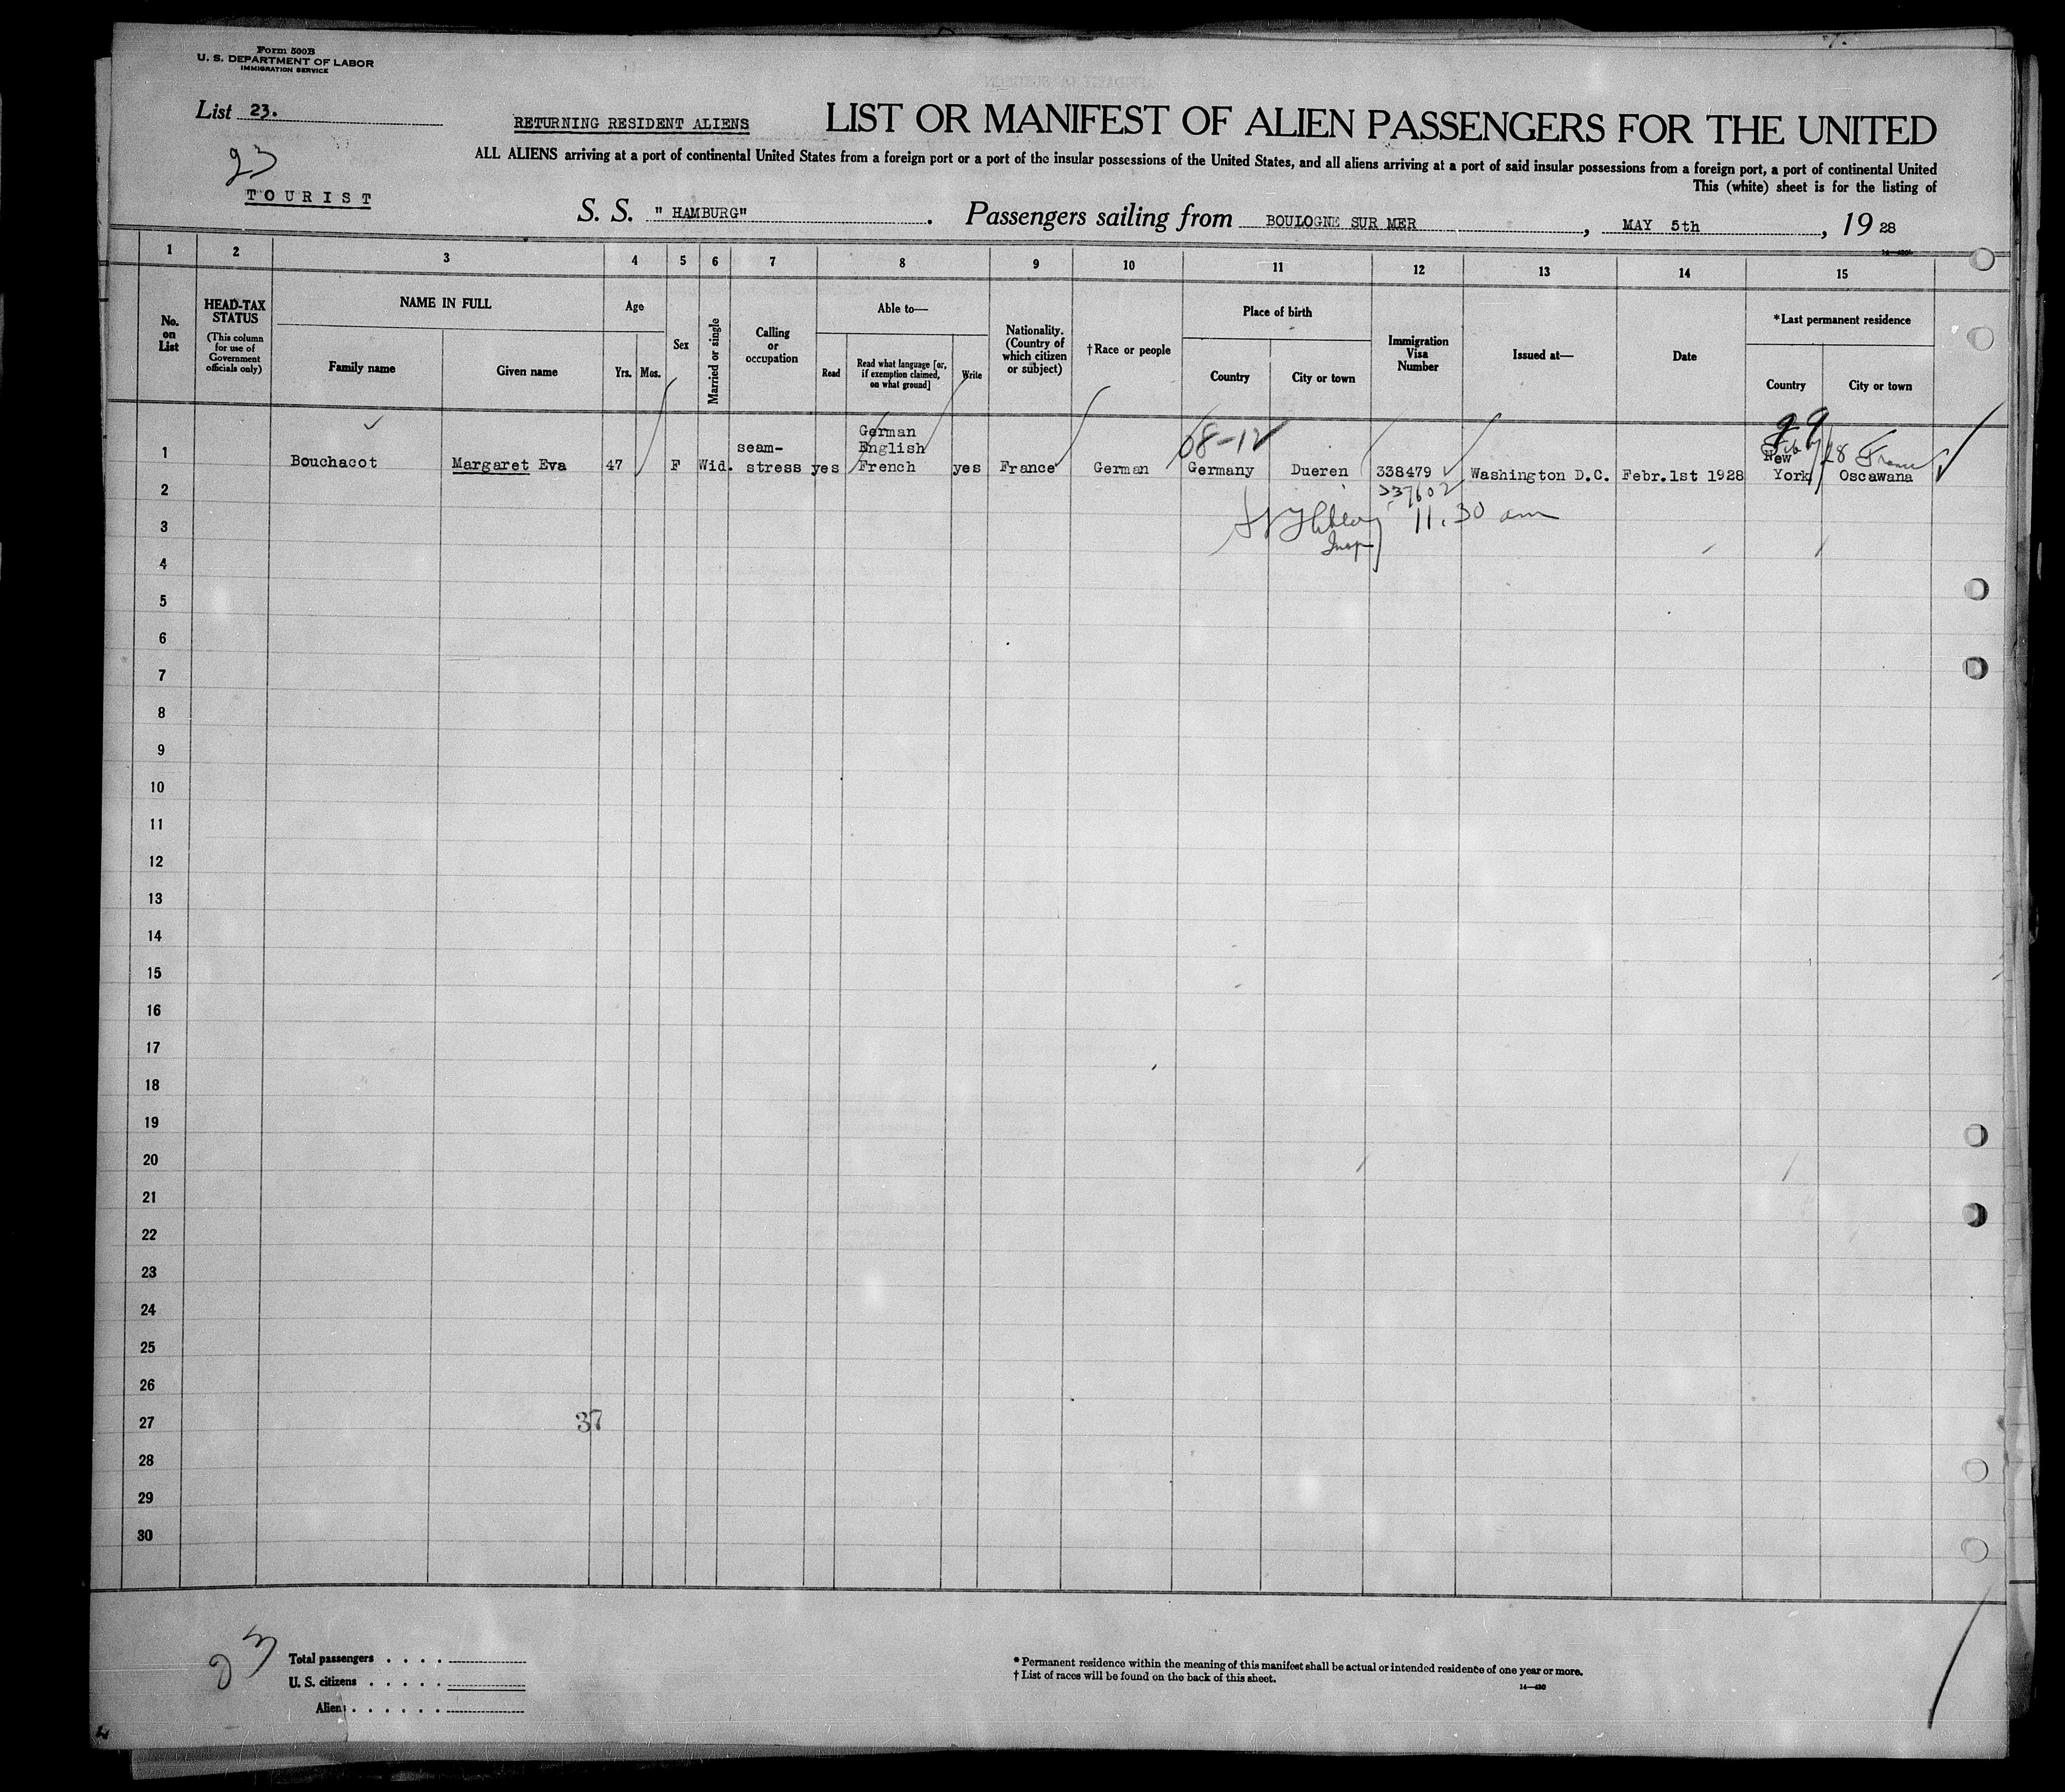 Form 500B
U. S. DEPARTMENT OF LABOR
IMMIGRATION SERVICE
List 23.
23
TOURIST
RETURNING RESIDENT ALIENS
LIST OR MANIFEST OF ALIEN PASSENGERS FOR THE UNITED
ALL ALIENS arriving at a port of continental United States from a foreign port or a port of the insular possessions of the United States, and all aliens arriving at a port of said insular possessions from a foreign port, a port of continental United
This (white) sheet is for the listing of
S. S. "HAMBURG" . Passengers sailing from BOULOGNE SUR MER , MAY 5th , 19 28
1 2 3 4 5 6 7 8 9 10 11 12 13 14 15
No. on List
HEAD-TAX STATUS
(This column for use of Government officials only)
NAME IN FULL
Family name
Given name
Age
Yrs. Mos.
Sex
Married or single
Calling or occupation
Able to—
Read
Read what language [or, if exemption claimed, on what ground]
Write
Nationality. (Country of which citizen or subject)
†Race or people
Place of birth
Country
City or town
Immigration Visa Number
Issued at—
Date
*Last permanent residence
Country
City or town
1 Bouchacot Margaret Eva 47 F Wid. seam-stress yes German English French yes France German Germany Dueren 338479 Washington D.C. Febr.1st 1928 New York Oscawana
08-12
99
337602
11.30 am
Insp
2
3
4
5
6
7
8
9
10
11
12
13
14
15
16
17
18
19
20
21
22
23
24
25
26
27
37
28
29
30
23
Total passengers
U. S. citizens
Aliens
* Permanent residence within the meaning of this manifest shall be actual or intended residence of one year or more.
† List of races will be found on the back of this sheet.
14—430